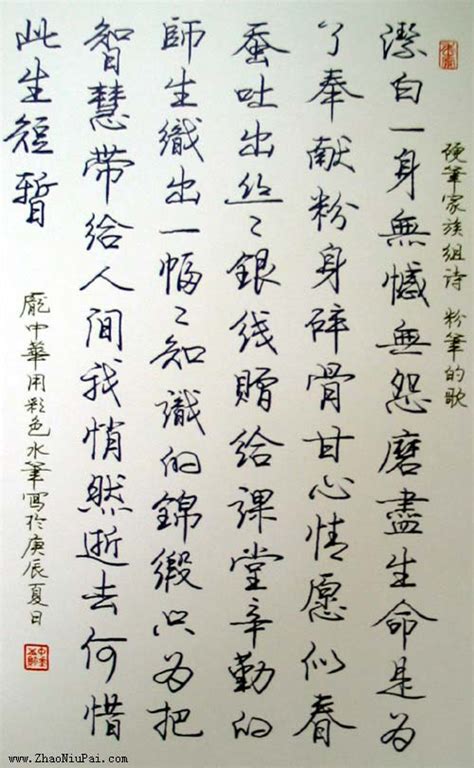 硬筆家族组诗 粉筆的歌
潔白一身無憾無怨磨盡生命是为
了奉献粉身碎骨甘心情愿似春
蚕吐出丝〻銀线赠给課堂辛勤的
師生織出一幅〻知識的錦缎只为把
智慧带给人间我悄然逝去何惜
此生短暫
龐中華用彩色水筆寫於庚辰夏日
www.ZhaoNiuPai.com